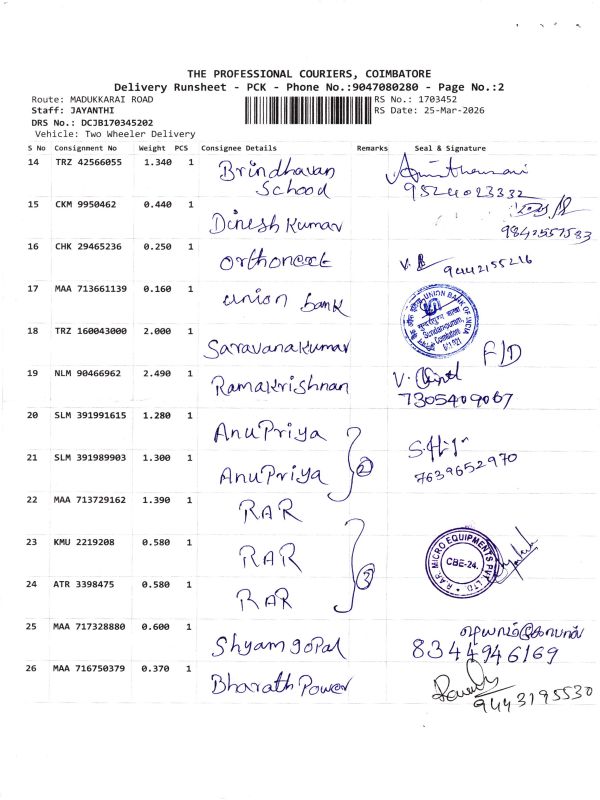 THE PROFESSIONAL COURIERS, COIMBATORE
Delivery Runsheet - PCK - Phone No.:9047080280 - Page No.:2
Route: MADUKKARAI ROAD RS No.: 1703452
Staff: JAYANTHI RS Date: 25-Mar-2026
DRS No.: DCJB170345202
Vehicle: Two Wheeler Delivery
S No Consignment No Weight PCS Consignee Details Remarks Seal & Signature
14 TRZ 42566055 1.340 1 Brindhavan School
9524023332
15 CKM 9950462 0.440 1 Dinesh Kumar
9842557583
16 CHK 29465236 0.250 1 Orthonext V. 9442155216
17 MAA 713661139 0.160 1 union bank
UNION BANK OF INDIA
Sundarapuram,
Coimbatore
18 TRZ 160043000 2.000 1 Saravanakumar F/D
19 NLM 90466962 2.490 1 Ramakrishnan V.
7305409067
20 SLM 391991615 1.280 1 AnuPriya
21 SLM 391989903 1.300 1 AnuPriya 2 7639652970
22 MAA 713729162 1.390 1 RAR
23 KMU 2219208 0.580 1 RAR
R.A.R MICRO EQUIPMENTS PVT. LTD.
CBE-24.
24 ATR 3398475 0.580 1 RAR 3
25 MAA 717328880 0.600 1 Shyam gopal ஷியாம்கோபால்
8344946169
26 MAA 716750379 0.370 1 Bharath Power
9443195530